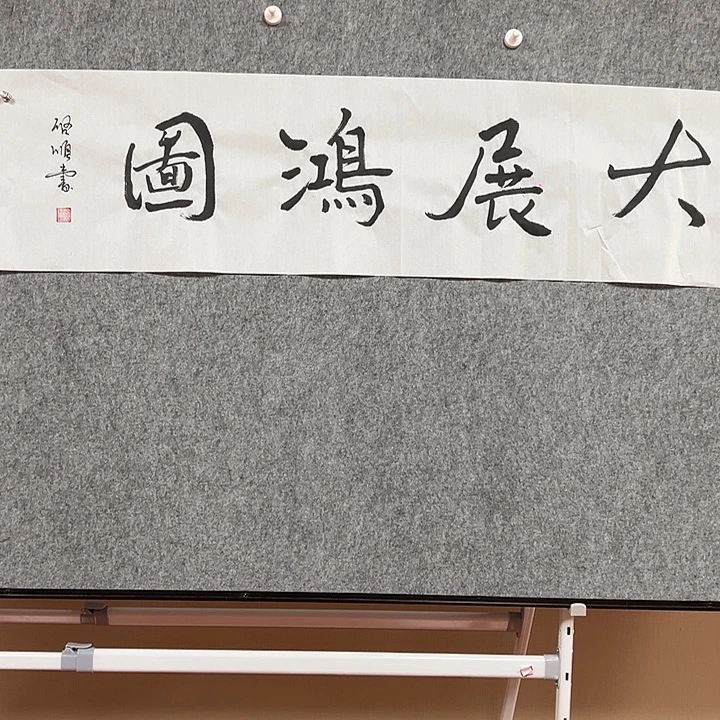 大展鴻圖
啓順書